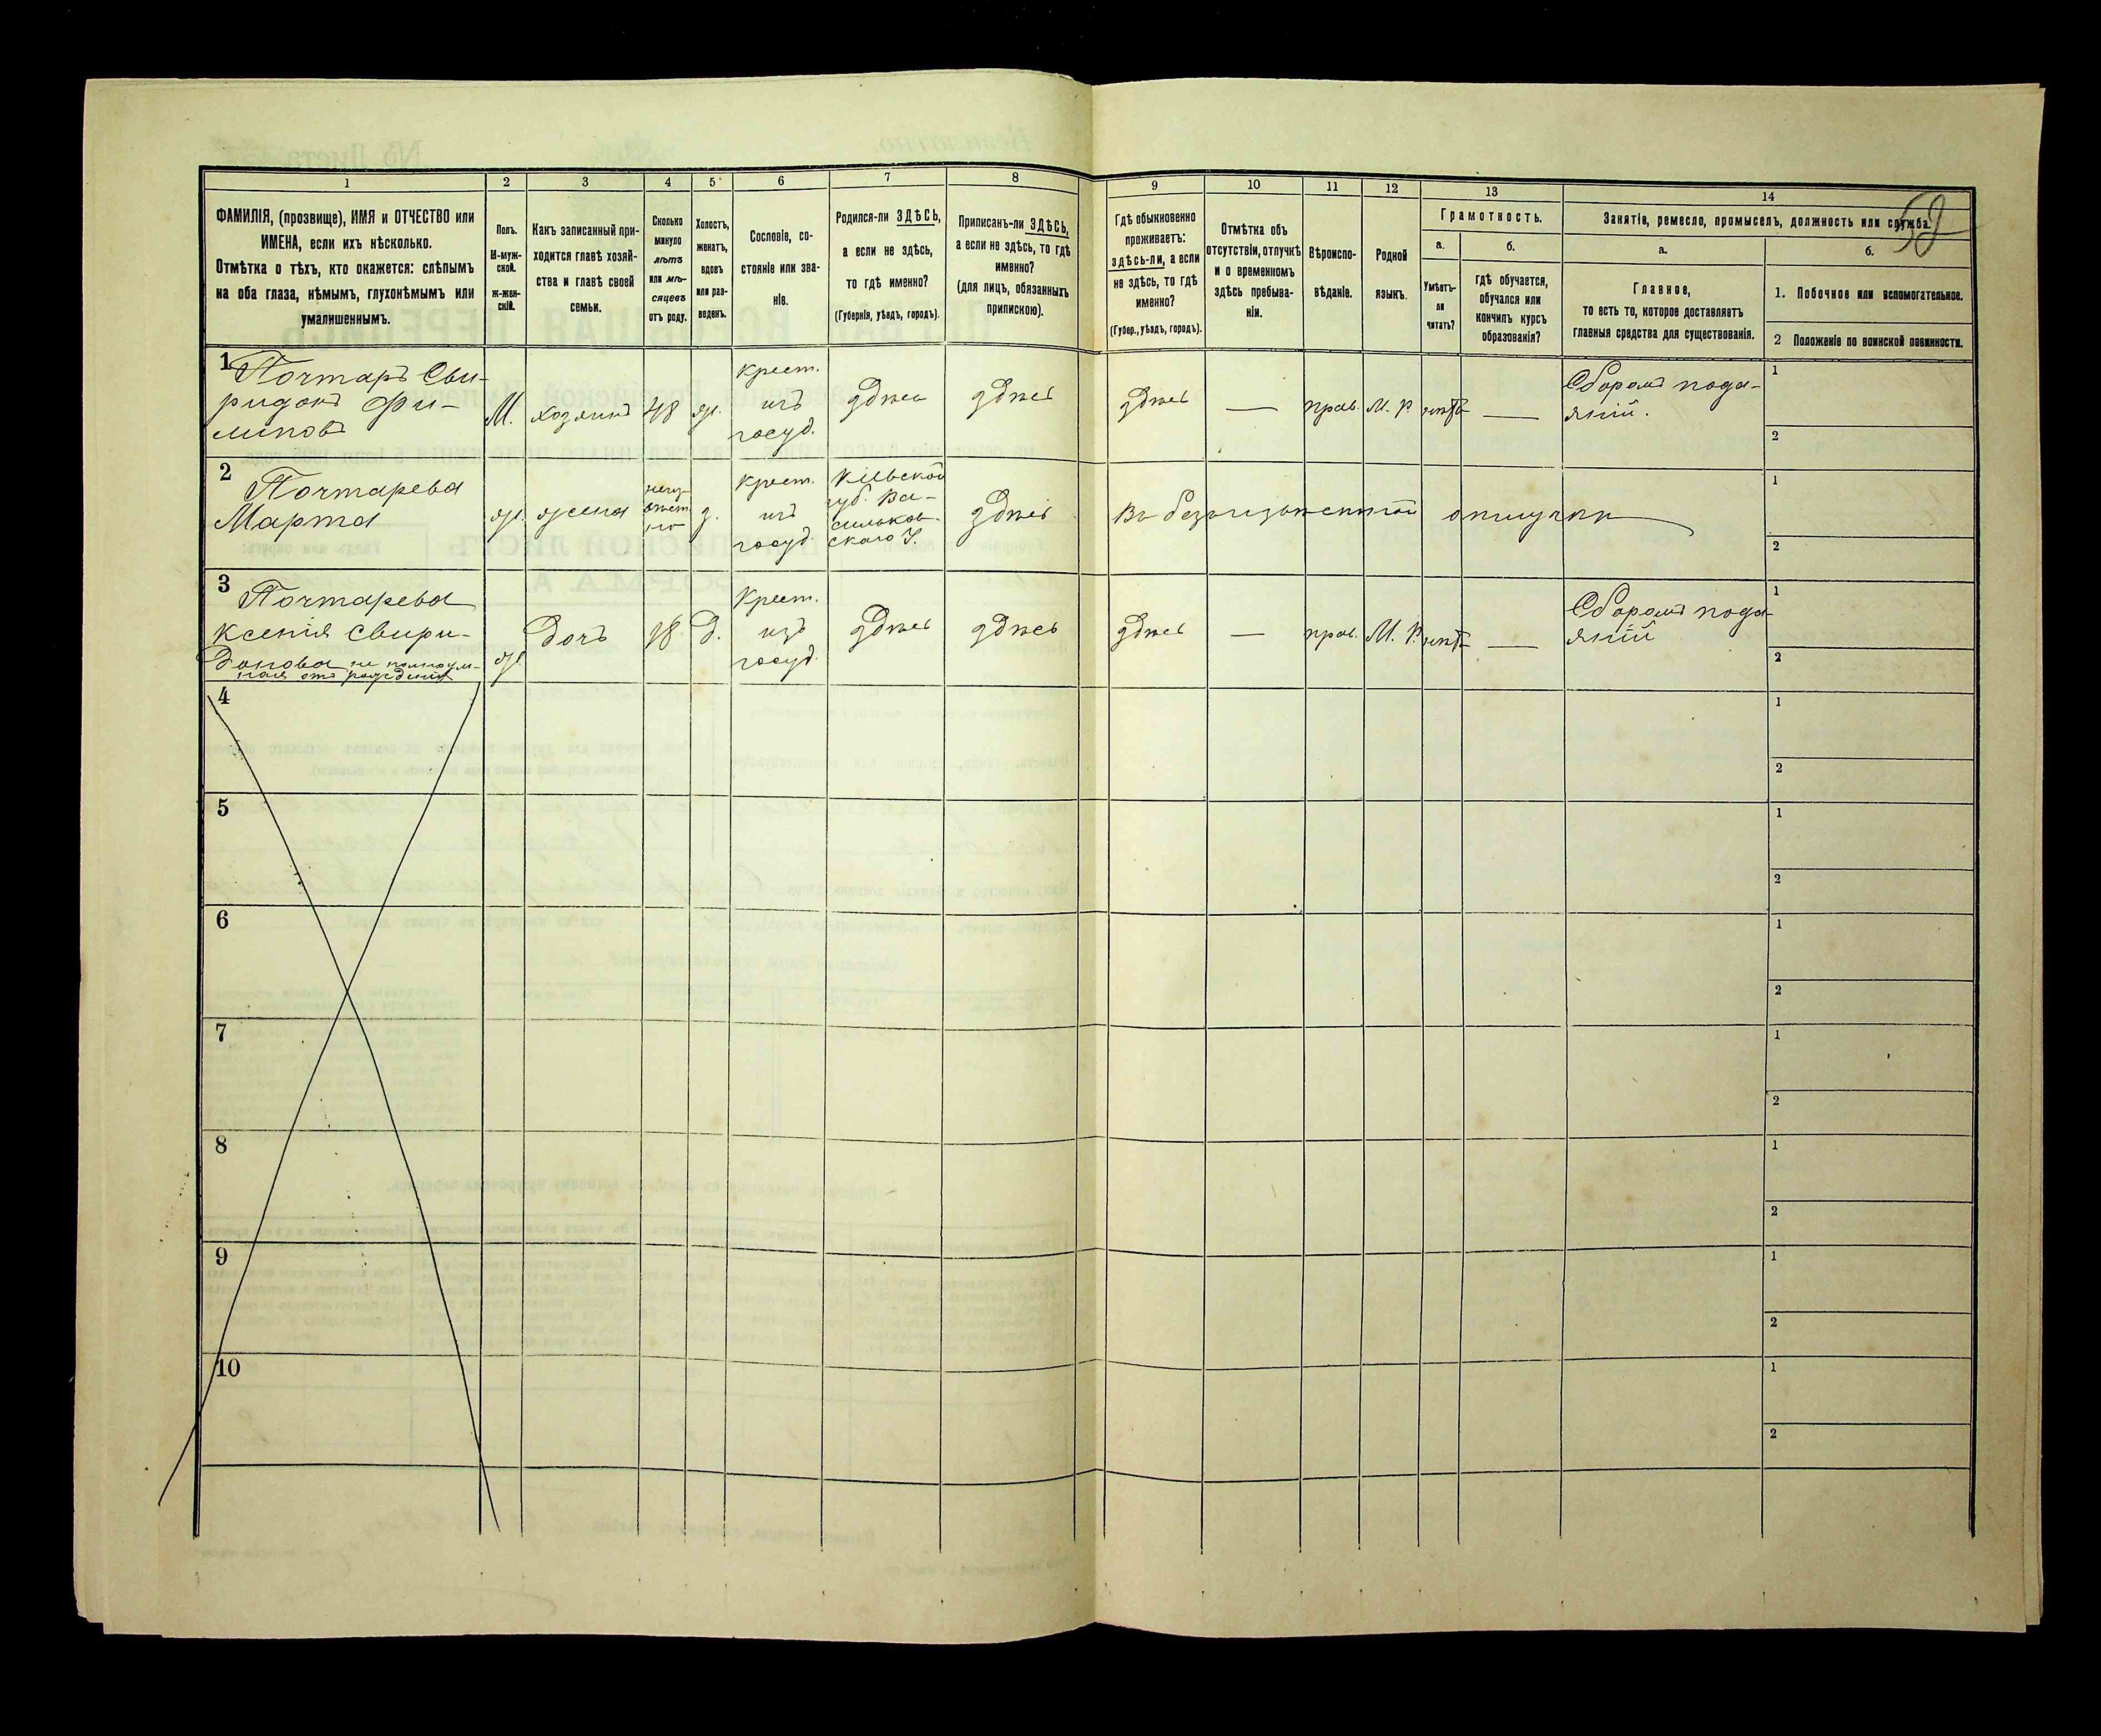 52
1
2
3
4
5
6
7
8
9
10
11
12
13
14
ФАМИЛІЯ, (прозвище), ИМЯ и ОТЧЕСТВО или
ИМЕНА, если ихъ нѣсколько.
Отмѣтка о тѣхъ, кто окажется: слѣпымъ
на оба глаза, нѣмымъ, глухонѣмымъ или
умалишеннымъ.
Полъ.
М-муж-
ской.
ж-жен-
скій.
Какъ записанный при-
ходится главѣ хозяй-
ства и главѣ своей
семьи.
Сколько
минуло
лѣтъ
или мѣ-
сяцевъ
отъ роду.
Холостъ,
женатъ,
вдовъ
или раз-
веденъ.
Сословіе, со-
стояніе или зва-
ніе.
Родился-ли ЗДѢСЬ,
а если не здѣсь,
то гдѣ именно?
(Губернія, уѣздъ, городъ).
Приписанъ-ли ЗДѢСЬ,
а если не здѣсь, то гдѣ
именно?
(для лицъ, обязанныхъ
припискою).
Гдѣ обыкновенно
проживаетъ:
здѣсь-ли, а если
не здѣсь, то гдѣ
именно?
(Губер., уѣздъ, городъ).
Отмѣтка объ
отсутствіи, отлучкѣ
и о временномъ
здѣсь пребыва-
ніи.
Вѣроиспо-
вѣданіе.
Родной
языкъ.
Грамотность.
а.
Умѣетъ-
ли
читать?
б.
гдѣ обучается,
обучался или
кончилъ курсъ
образованія?
Занятіе, ремесло, промыселъ, должность или служба.
а.
Главное,
то есть то, которое доставляетъ
главныя средства для существованія.
б.
1. Побочное или вспомогательное.
2 Положеніе по воинской повинности.
1 Почтарь Сви-
ридонъ Фи-
липовъ
М.
хозяинъ
48
ж.
крест.
изъ
госуд.
здѣсь
здѣсь
здѣсь
—
прав.
М. Р.
нѣтъ
—
Сборомъ пода-
яній.
1
2
2 Почтарева
Марта
ж.
жена
з.
крест.
изъ
госуд
Кіевской
губ. Ва-
сильков-
скаго У.
здѣсь
Въ безъизвѣстной отлучкѣ
1
2
3 Почтарева
Ксенія Свири-
донова не полоум-
ная отъ рожденія
ж.
дочь
18
д.
Крест.
изъ
госуд.
здѣсь
здѣсь
здѣсь
—
прав.
М. Р.
нѣтъ
—
Сборомъ пода-
яній
1
2
4
1
2
5
1
2
6
1
2
7
1
2
8
1
2
9
1
2
10
1
2